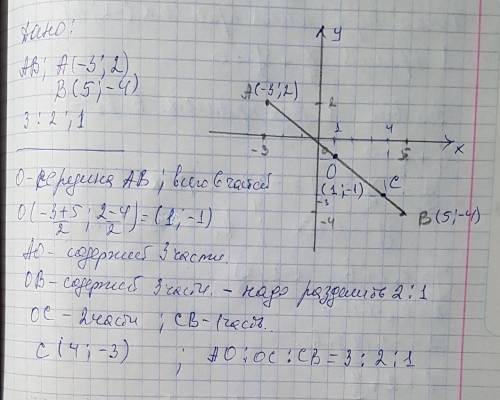 Дано:
АВ; А(-3; 2)
В(5; -4)
3:2:1
О-середина АВ; всего 6 частей
О(-3+5/2; 2-4/2)=(1, -1)
АО-содержит 3 части.
ОВ-содержит 3 части. - надо разделить 2:1
ОС-2 части; СВ-1 часть.
С(4; -3); АО:ОС:СВ=3:2:1
у
А(-3; 2)
2
1
4
-3
5
х
О
(1; -1)
С
-3
-4
В(5; -4)